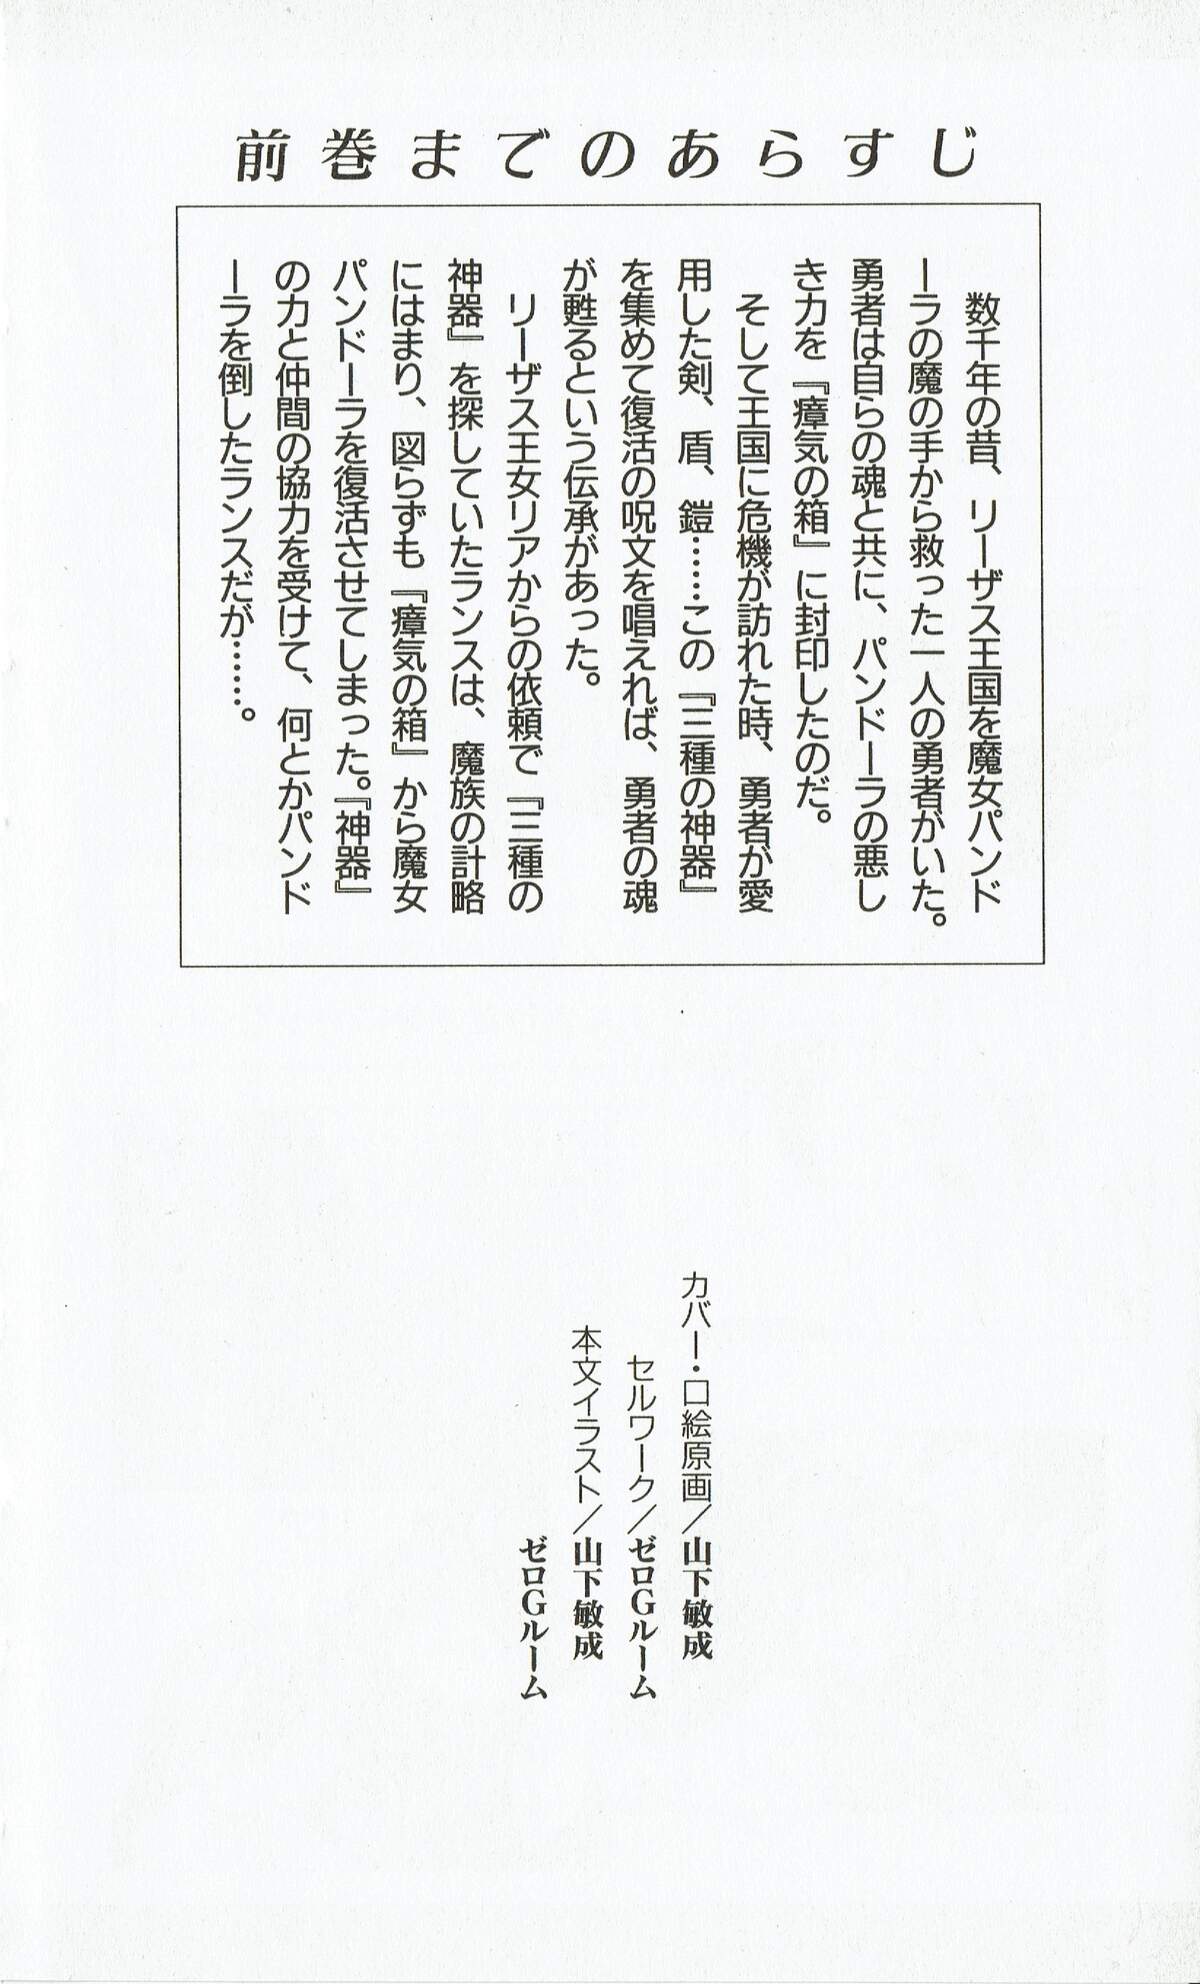 前巻までのあらすじ
　数千年の昔、リーザス王国を魔女パンド
ーラの魔の手から救った一人の勇者がいた。
勇者は自らの魂と共に、パンドーラの悪し
き力を『瘴気の箱』に封印したのだ。
　そして王国に危機が訪れた時、勇者が愛
用した剣、盾、鎧……この『三種の神器』
を集めて復活の呪文を唱えれば、勇者の魂
が甦るという伝承があった。
　リーザス王女リアからの依頼で『三種の
神器』を探していたランスは、魔族の計略
にはまり、図らずも『瘴気の箱』から魔女
パンドーラを復活させてしまった。『神器』
の力と仲間の協力を受けて、何とかパンド
ーラを倒したランスだが……。
カバー・口絵原画／山下敏成
セルワーク／ゼロGルーム
本文イラスト／山下敏成
ゼロGルーム